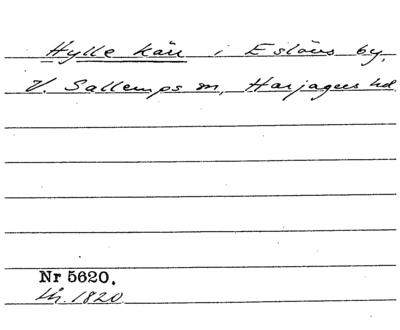 Hylle kärr i Eslövs by,
V. Sallerups sn, Harjagers hd
Nr 5620.
Lth. 1820